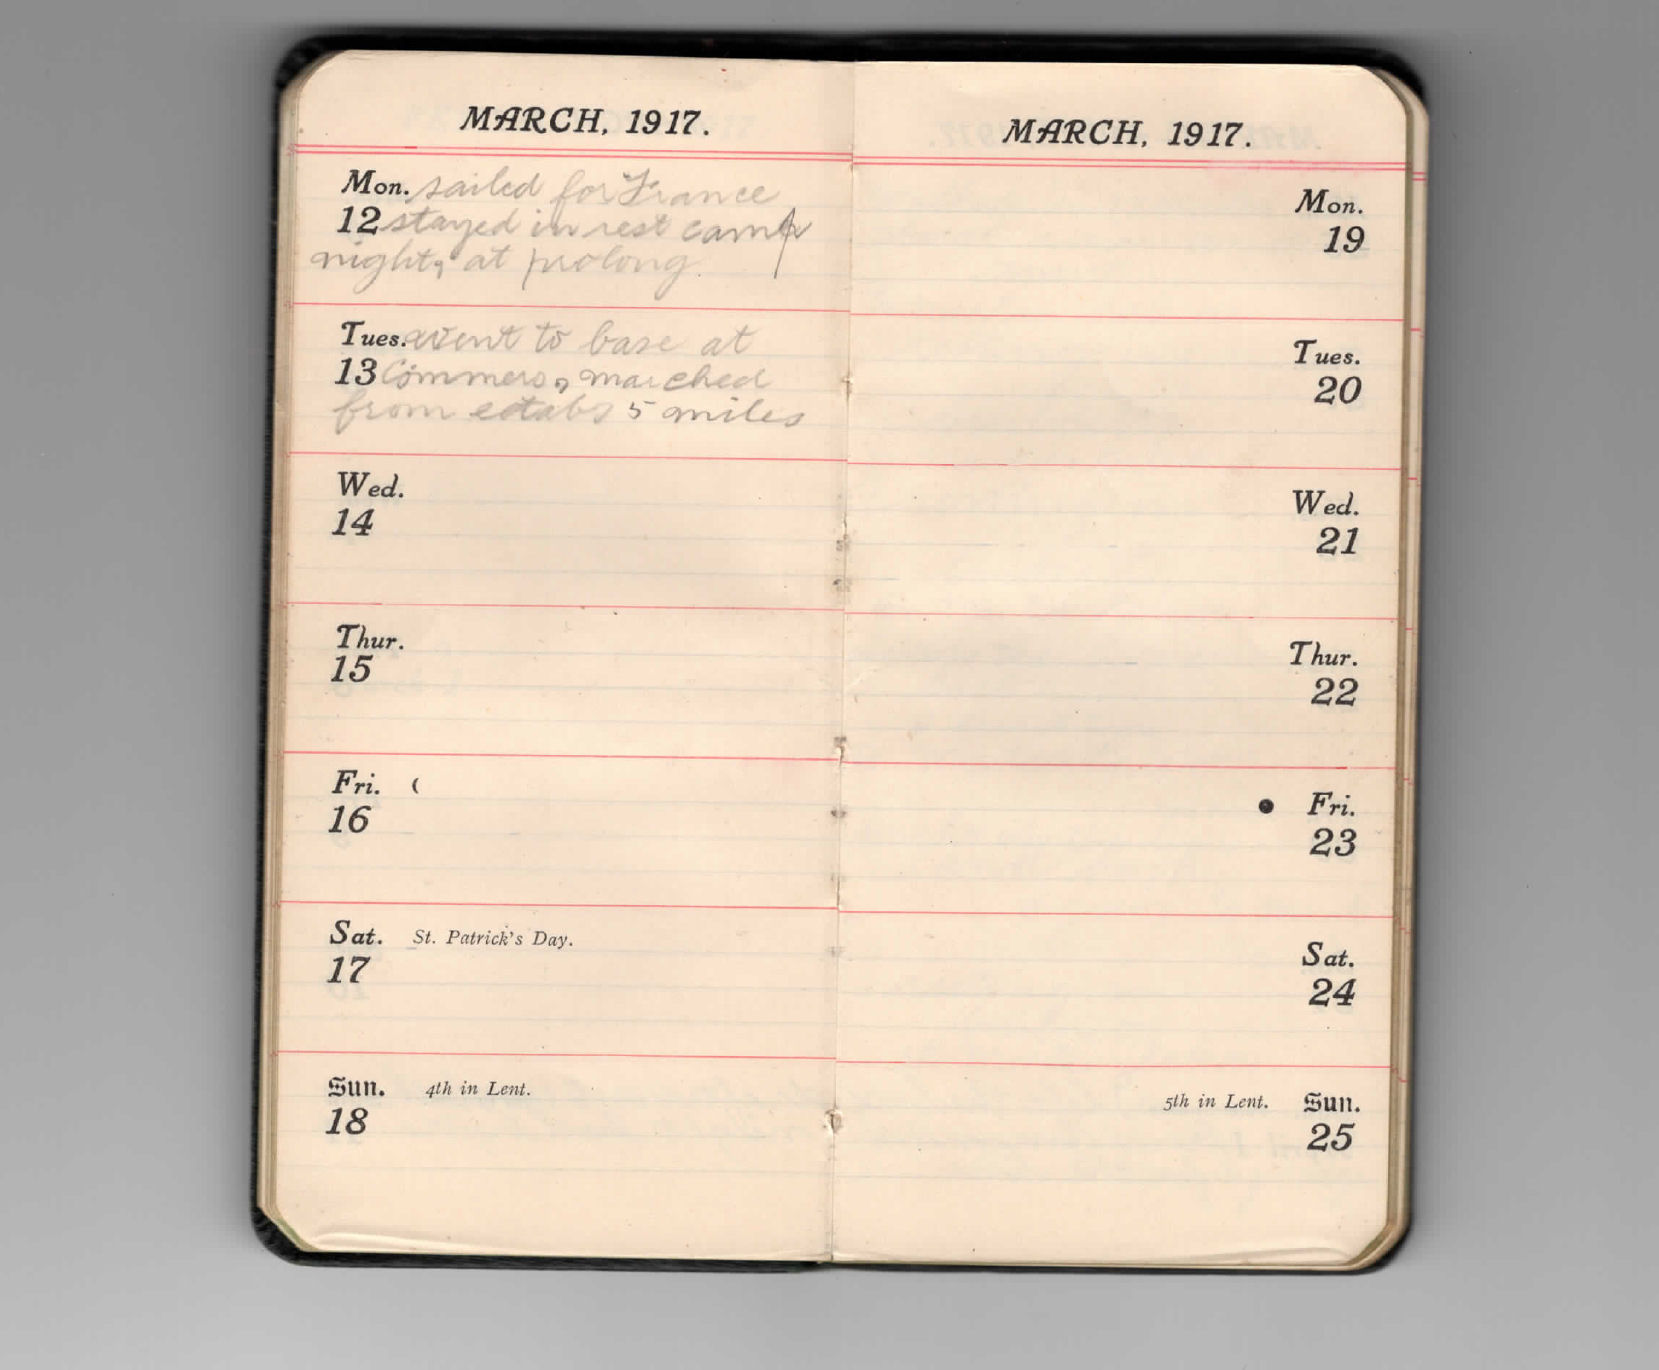 MARCH, 1917.
Mon. sailed for France
12 stayed in rest camp
night, at prolong.
Tues. went to base at
13 Commers, marched
from estabs 5 miles
Wed.
14
Thur.
15
Fri. (
16
Sat. St. Patrick's Day.
17
Sun. 4th in Lent.
18
MARCH, 1917.
Mon.
19
Tues.
20
Wed.
21
Thur.
22
Fri.
23
Sat.
24
5th in Lent. Sun.
25